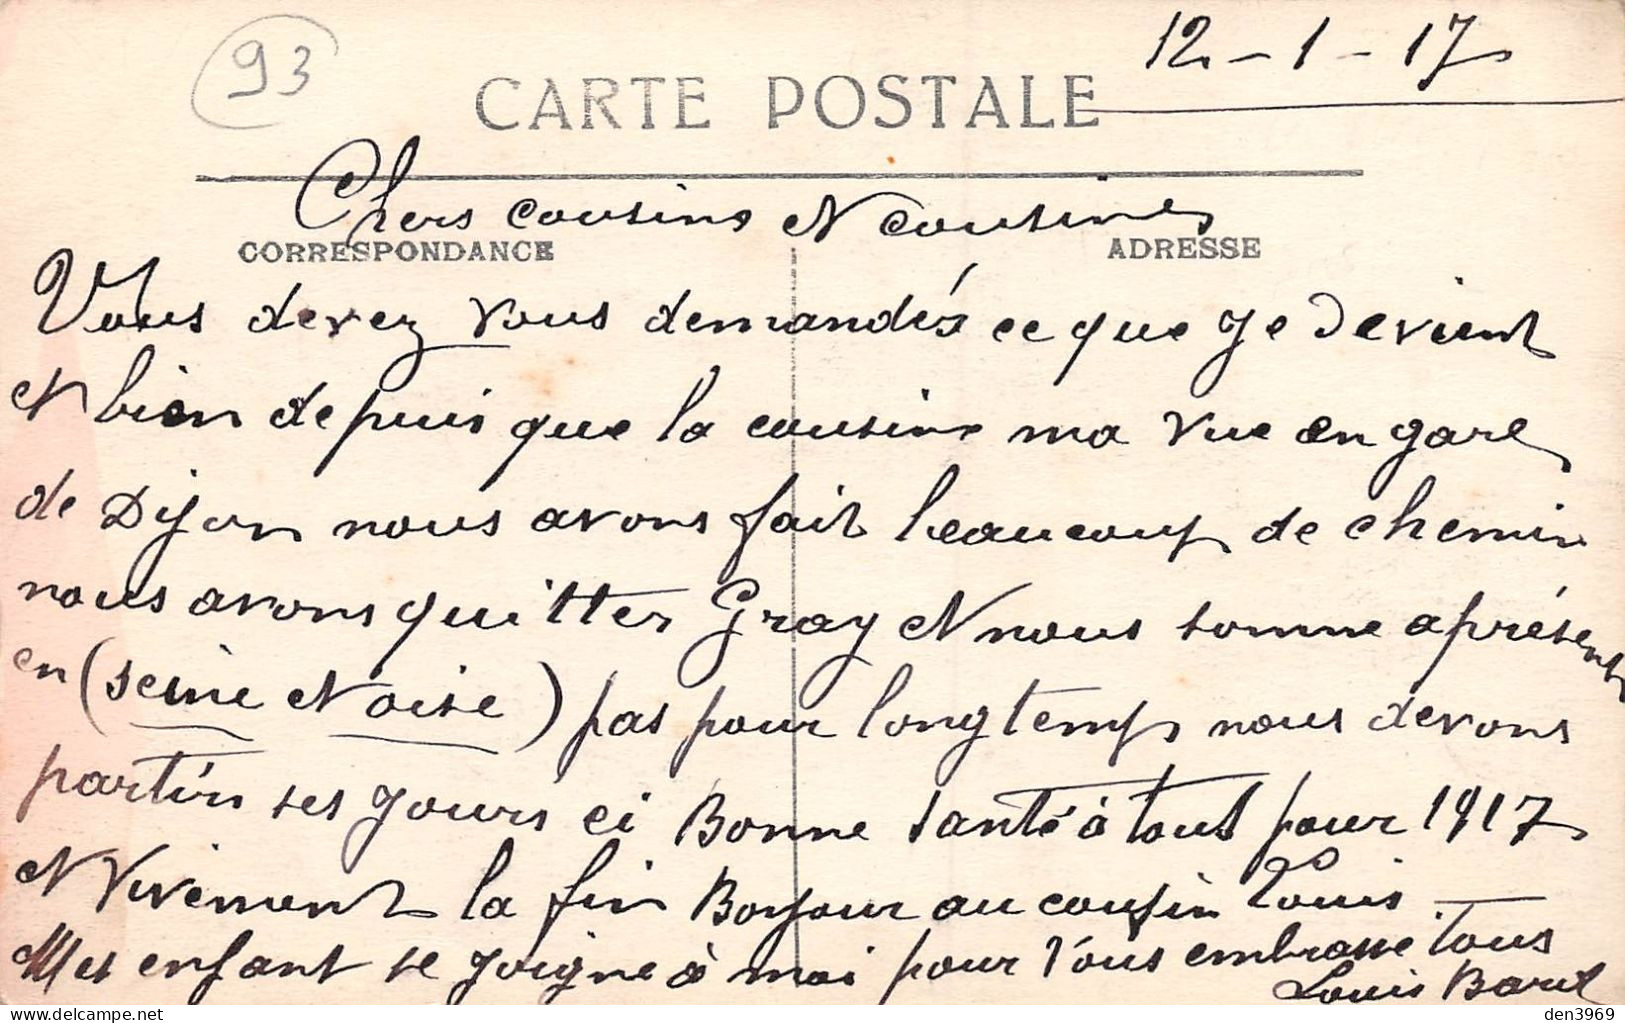 93
12-1-17
CARTE POSTALE
Chers cousins et cousines
CORRESPONDANCE
ADRESSE
Vous devez vous demandés ce que je devient
et bien depuis que la cousine ma vue en gare
de Dijon nous avons fait beaucoup de chemin
nous avons quitter Gray et nous somme aprésent
en (seine et oise) pas pour longtemps nous devons
partir ses jours ci Bonne santé à tout pour 1917
et vivement la fin Bonjour au cousin Louis
Mes enfant se joigne à moi pour vous embrasse tous
Louis
den3969